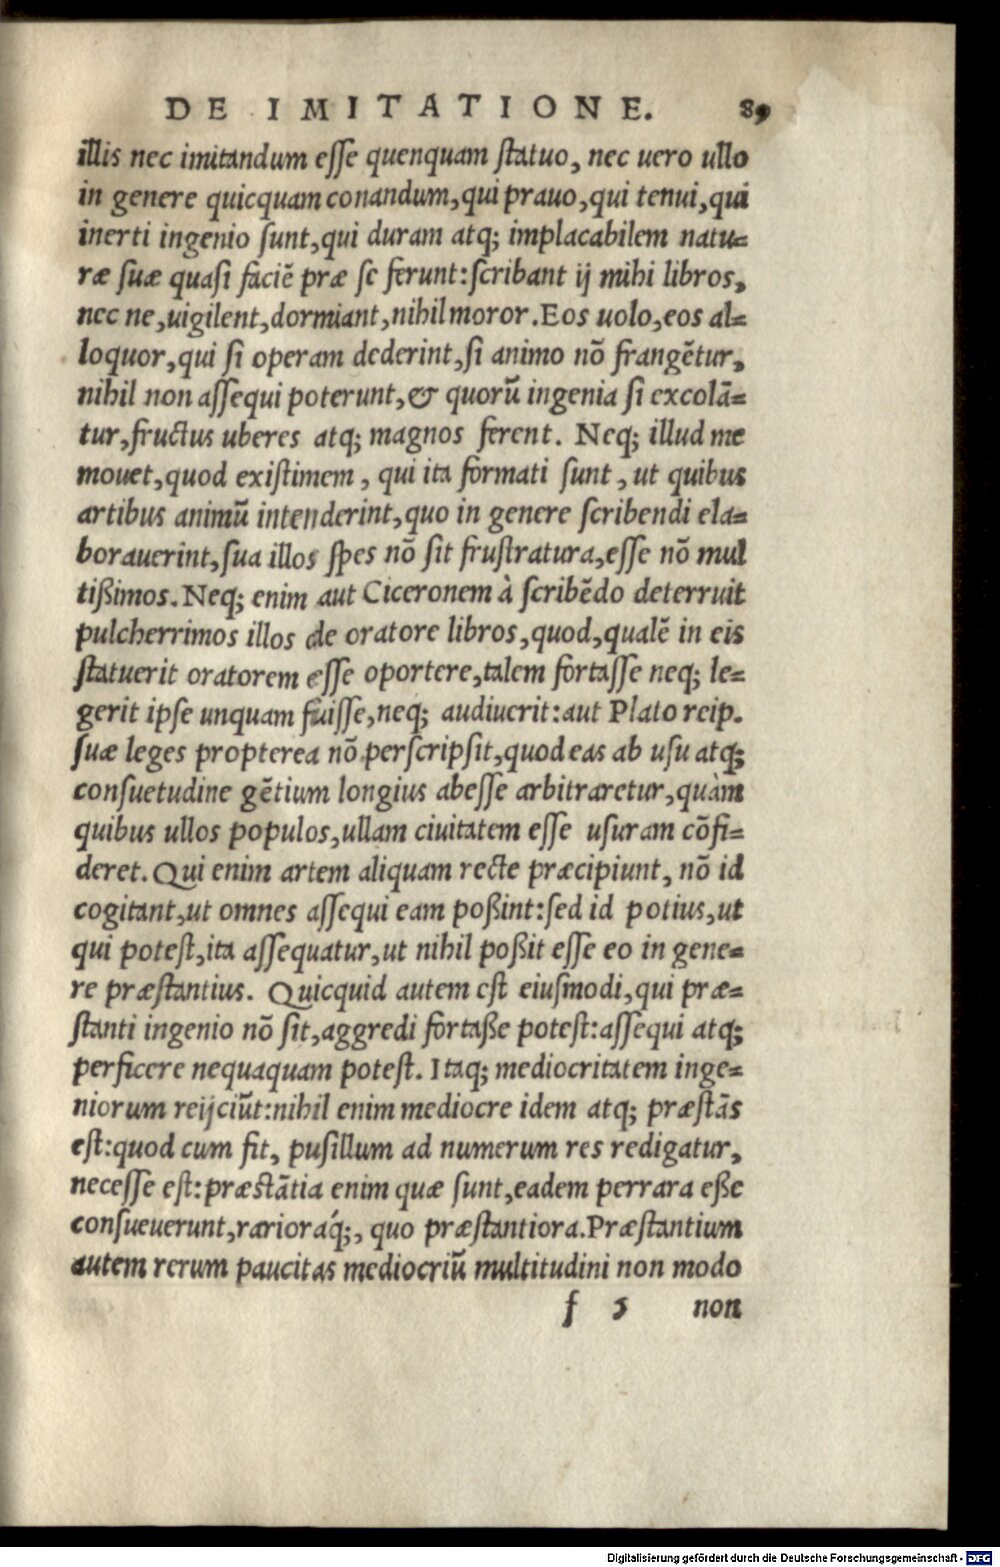 DE IMITATIONE. 89
illis nec imitandum esse quenquam statuo, nec uero ullo
in genere quicquam conandum, qui prauo, qui tenui, qui
inerti ingenio sunt, qui duram atq; implacabilem natu-
ræ suæ quasi faciẽ præ se ferunt: scribant ij mihi libros,
nec ne, uigilent, dormiant, nihil moror. Eos uolo, eos al-
loquor, qui si operam dederint, si animo nõ frangẽtur,
nihil non assequi poterunt, & quorũ ingenia si excolã-
tur, fructus uberes atq; magnos ferent. Neq; illud me
mouet, quod existimem, qui ita formati sunt, ut quibus
artibus animũ intenderint, quo in genere scribendi ela-
borauerint, sua illos spes nõ sit frustratura, esse nõ mul
tißimos. Neq; enim aut Ciceronem à scribẽdo deterruit
pulcherrimos illos de oratore libros, quod, qualẽ in eis
statuerit oratorem esse oportere, talem fortasse neq; le-
gerit ipse unquam fuisse, neq; audiuerit: aut Plato reip.
suæ leges propterea nõ perscripsit, quod eas ab usu atq;
consuetudine gẽtium longius abesse arbitraretur, quàm
quibus ullos populos, ullam ciuitatem esse usuram cõfi-
deret. Qui enim artem aliquam recte præcipiunt, nõ id
cogitant, ut omnes assequi eam poßint: sed id potius, ut
qui potest, ita assequatur, ut nihil poßit esse eo in gene-
re præstantius. Quicquid autem est eiusmodi, qui præ-
stanti ingenio nõ sit, aggredi fortaße potest: assequi atq;
perficere nequaquam potest. Itaq; mediocritatem inge-
niorum reijciũt: nihil enim mediocre idem atq; præstãs
est: quod cum fit, pusillum ad numerum res redigatur,
necesse est: præstãtia enim quæ sunt, eadem perrara eße
consueuerunt, rarioraq́;, quo præstantiora. Præstantium
autem rerum paucitas mediocriũ multitudini non modo
f 5 non
Digitalisierung gefördert durch die Deutsche Forschungsgemeinschaft - DFG